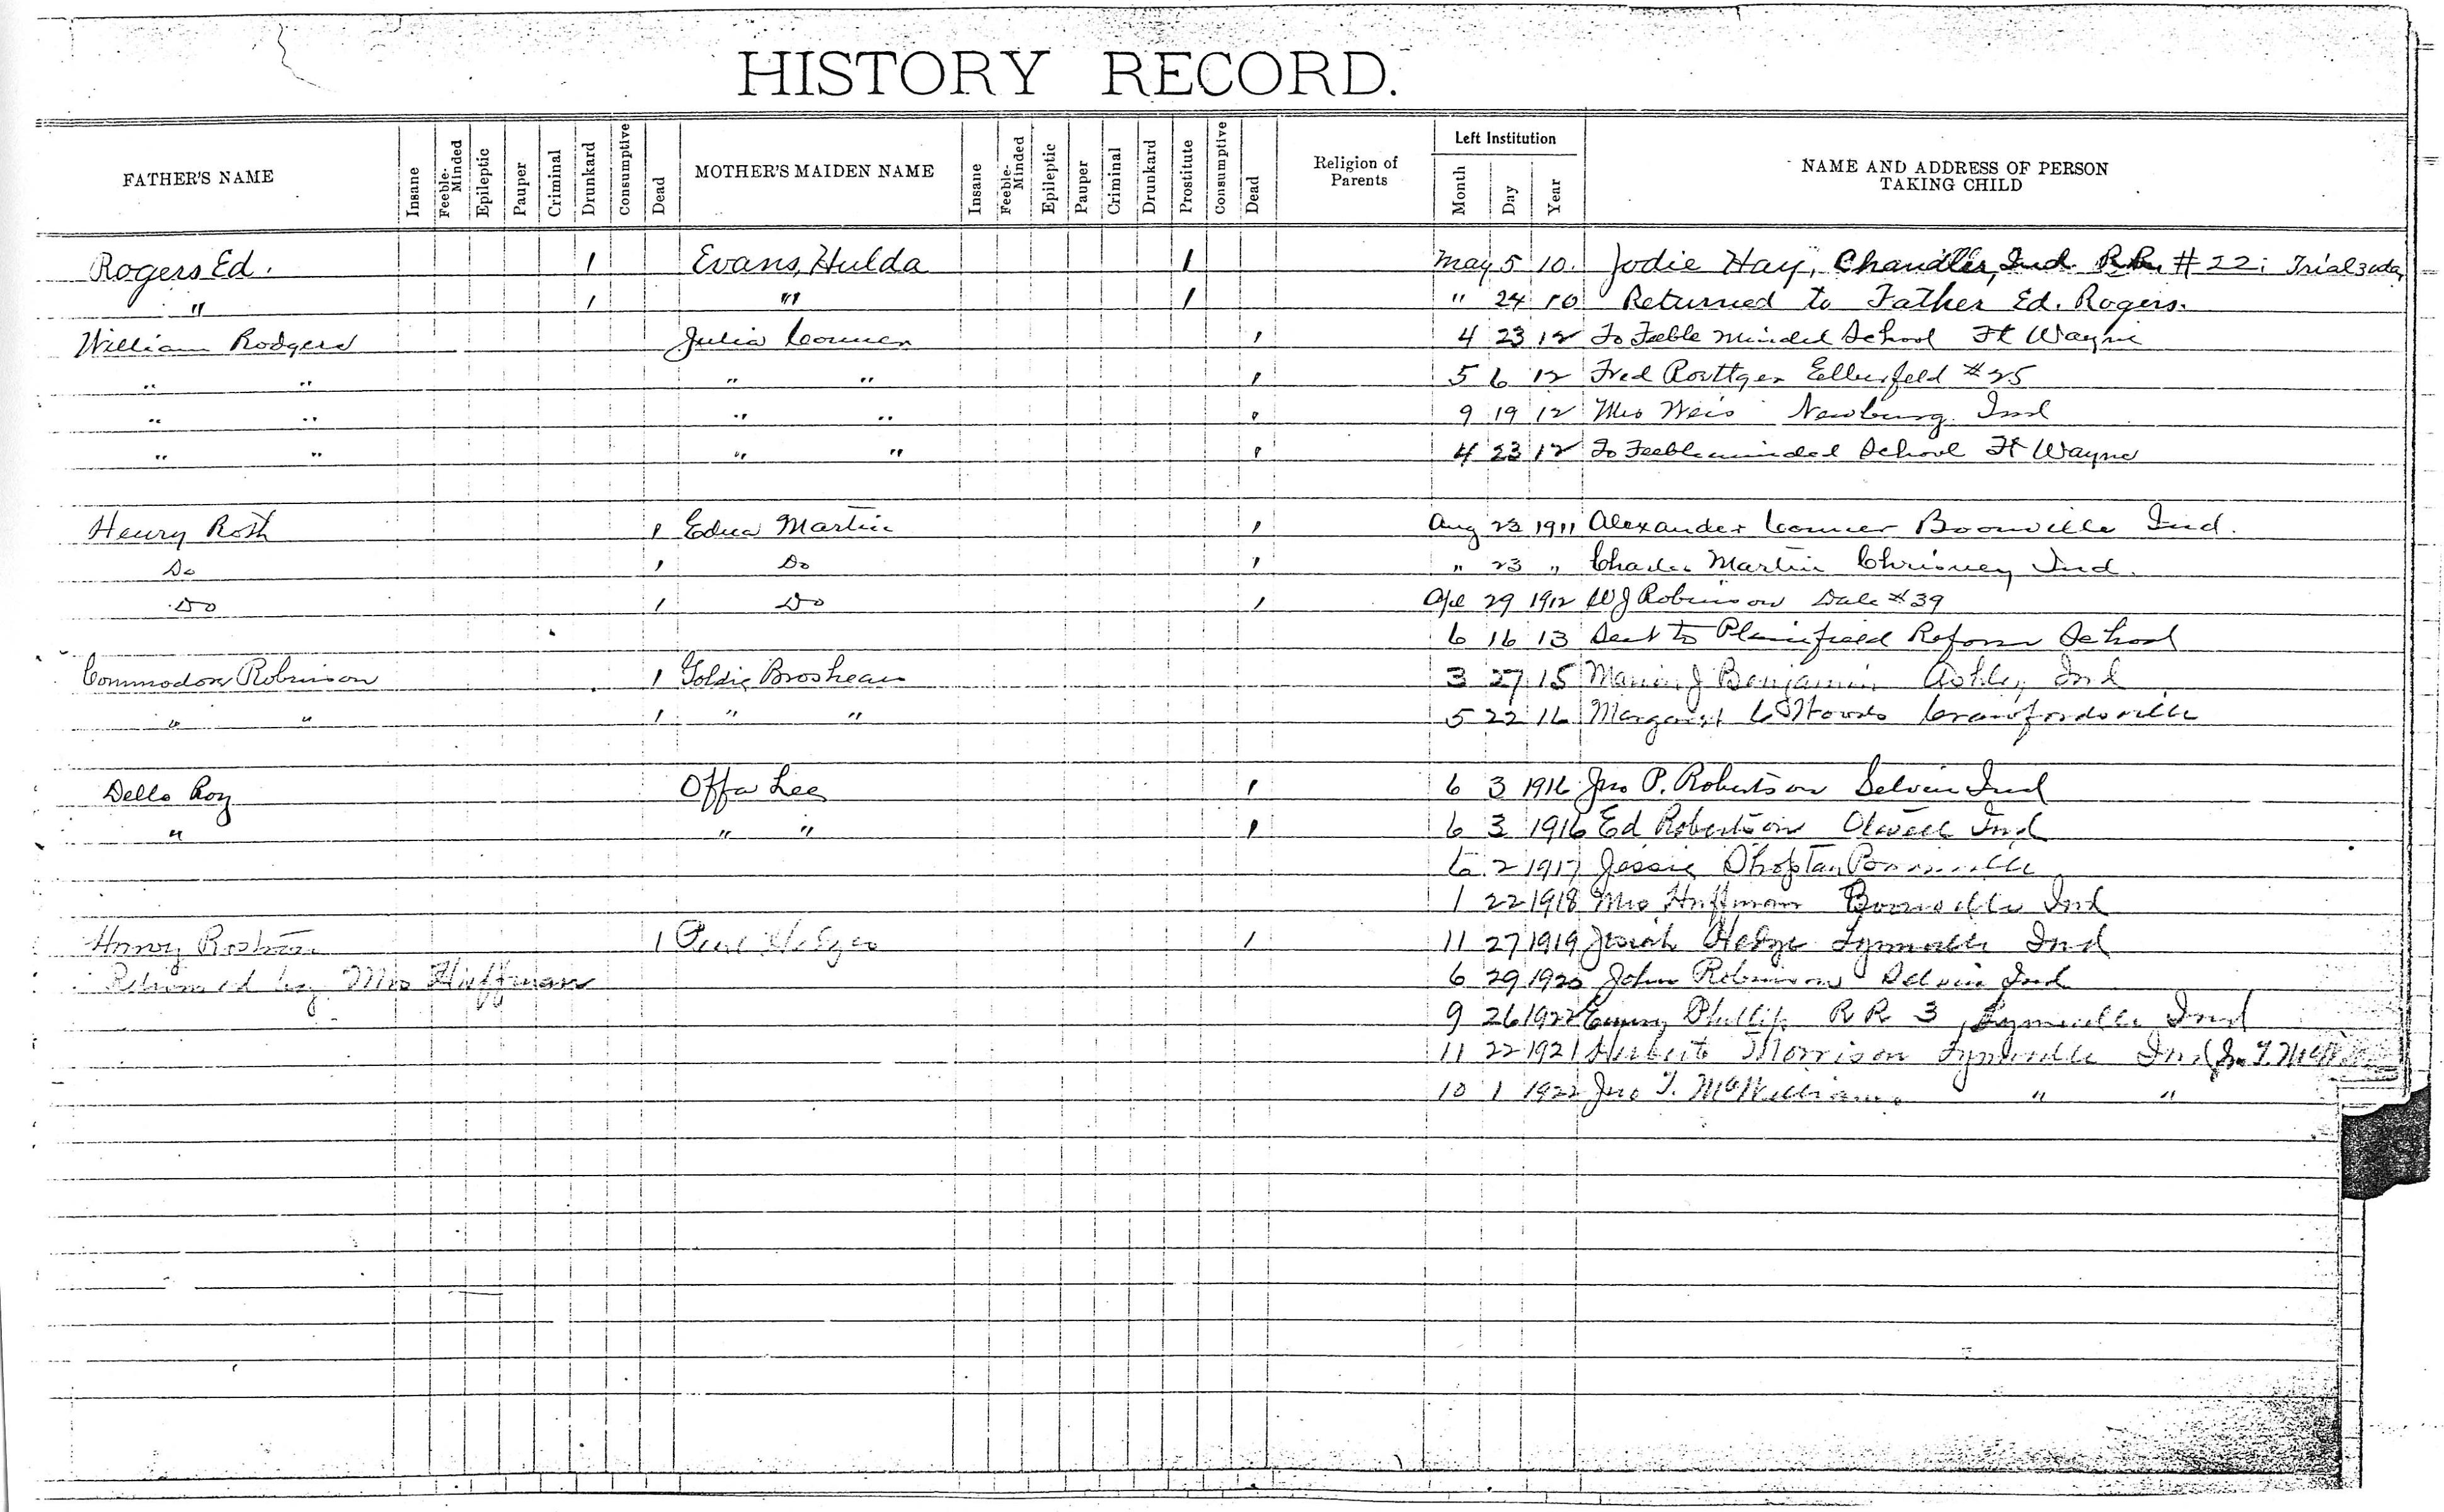 HISTORY RECORD.
FATHER'S NAME Insane Feeble-Minded Epileptic Pauper Criminal Drunkard Consumptive Dead MOTHER'S MAIDEN NAME Insane Feeble-Minded Epileptic Pauper Criminal Drunkard Prostitute Consumptive Dead Religion of Parents Left Institution Month Day Year NAME AND ADDRESS OF PERSON TAKING CHILD
Rogers Ed. 1 Evans, Hulda 1 May 5 10. Jodie Hay, Chandler, Ind. R.R. #22; Trial
" 1 " 1 " 24 10 Returned to Father Ed. Rogers.
William Rodgers Julia 1 4 23 12 To Feeble Minded School Ft Wayne
" " " " 1 5 6 12 Fred Roettger Elberfeld #25
" " " " 1 9 19 12 Mrs Weis Newburg Ind
" " " " 1 4 23 12 To Feebleminded School Ft Wayne
Henry Roth 1 Edna Martin 1 Aug 23 1911 Alexander Boonville Ind.
Do 1 Do 1 " 23 " Charles Martin Chrisney Ind.
Do 1 Do 1 Apl 29 1912 W J Robinson Dale #39
6 16 13 Sent to Plainfield Reform School
Commodore Robinson 1 Goldie Broshears 3 27 15 J Benjamin Ashley Ind
" " 1 " " 5 22 16 Margaret Woods Crawfordsville
Dello Roy Offa Lee 1 6 3 1916 Jno P. Robertson Selvin Ind
" " " 1 6 3 1916 Ed Robertson Otwell Ind
2 1917 Jessie Boonville
1 22 1918 Mrs Huffman Boonville Ind
1 1 11 27 1919 Josiah Hedge Lynnville Ind
Returned by Mrs Huffman 6 29 1920 John Robinson Selvin Ind
9 26 1922 Phillips R R 3 Lynnville Ind
11 22 1921 Herbert Morrison Lynnville Ind
10 1 1922 Jno T. McWilliams " "